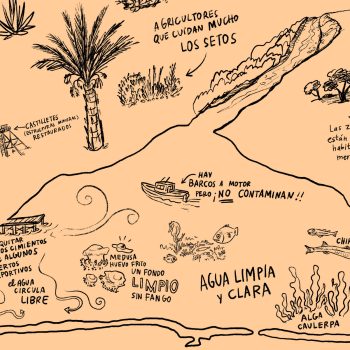 AGRICULTORES
QUE CUIDAN MUCHO
LOS SETOS
CASTILLETES
(ESTRUCTURAS MINERAS)
RESTAURADOS
Las
están
habit
me
HAY
BARCOS A MOTOR
PERO ¡NO CONTAMINAN!!
QUITAR
LOS CIMIENTOS
ALGUNOS
PORTIVOS
el AGUA
CIRCULA
LIBRE
MEDUSA
HUEVO FRITO
UN FONDO
LIMPIO
SIN FANGO
AGUA LIMPIA
y CLARA
CHI
ALGA
CAULERPA